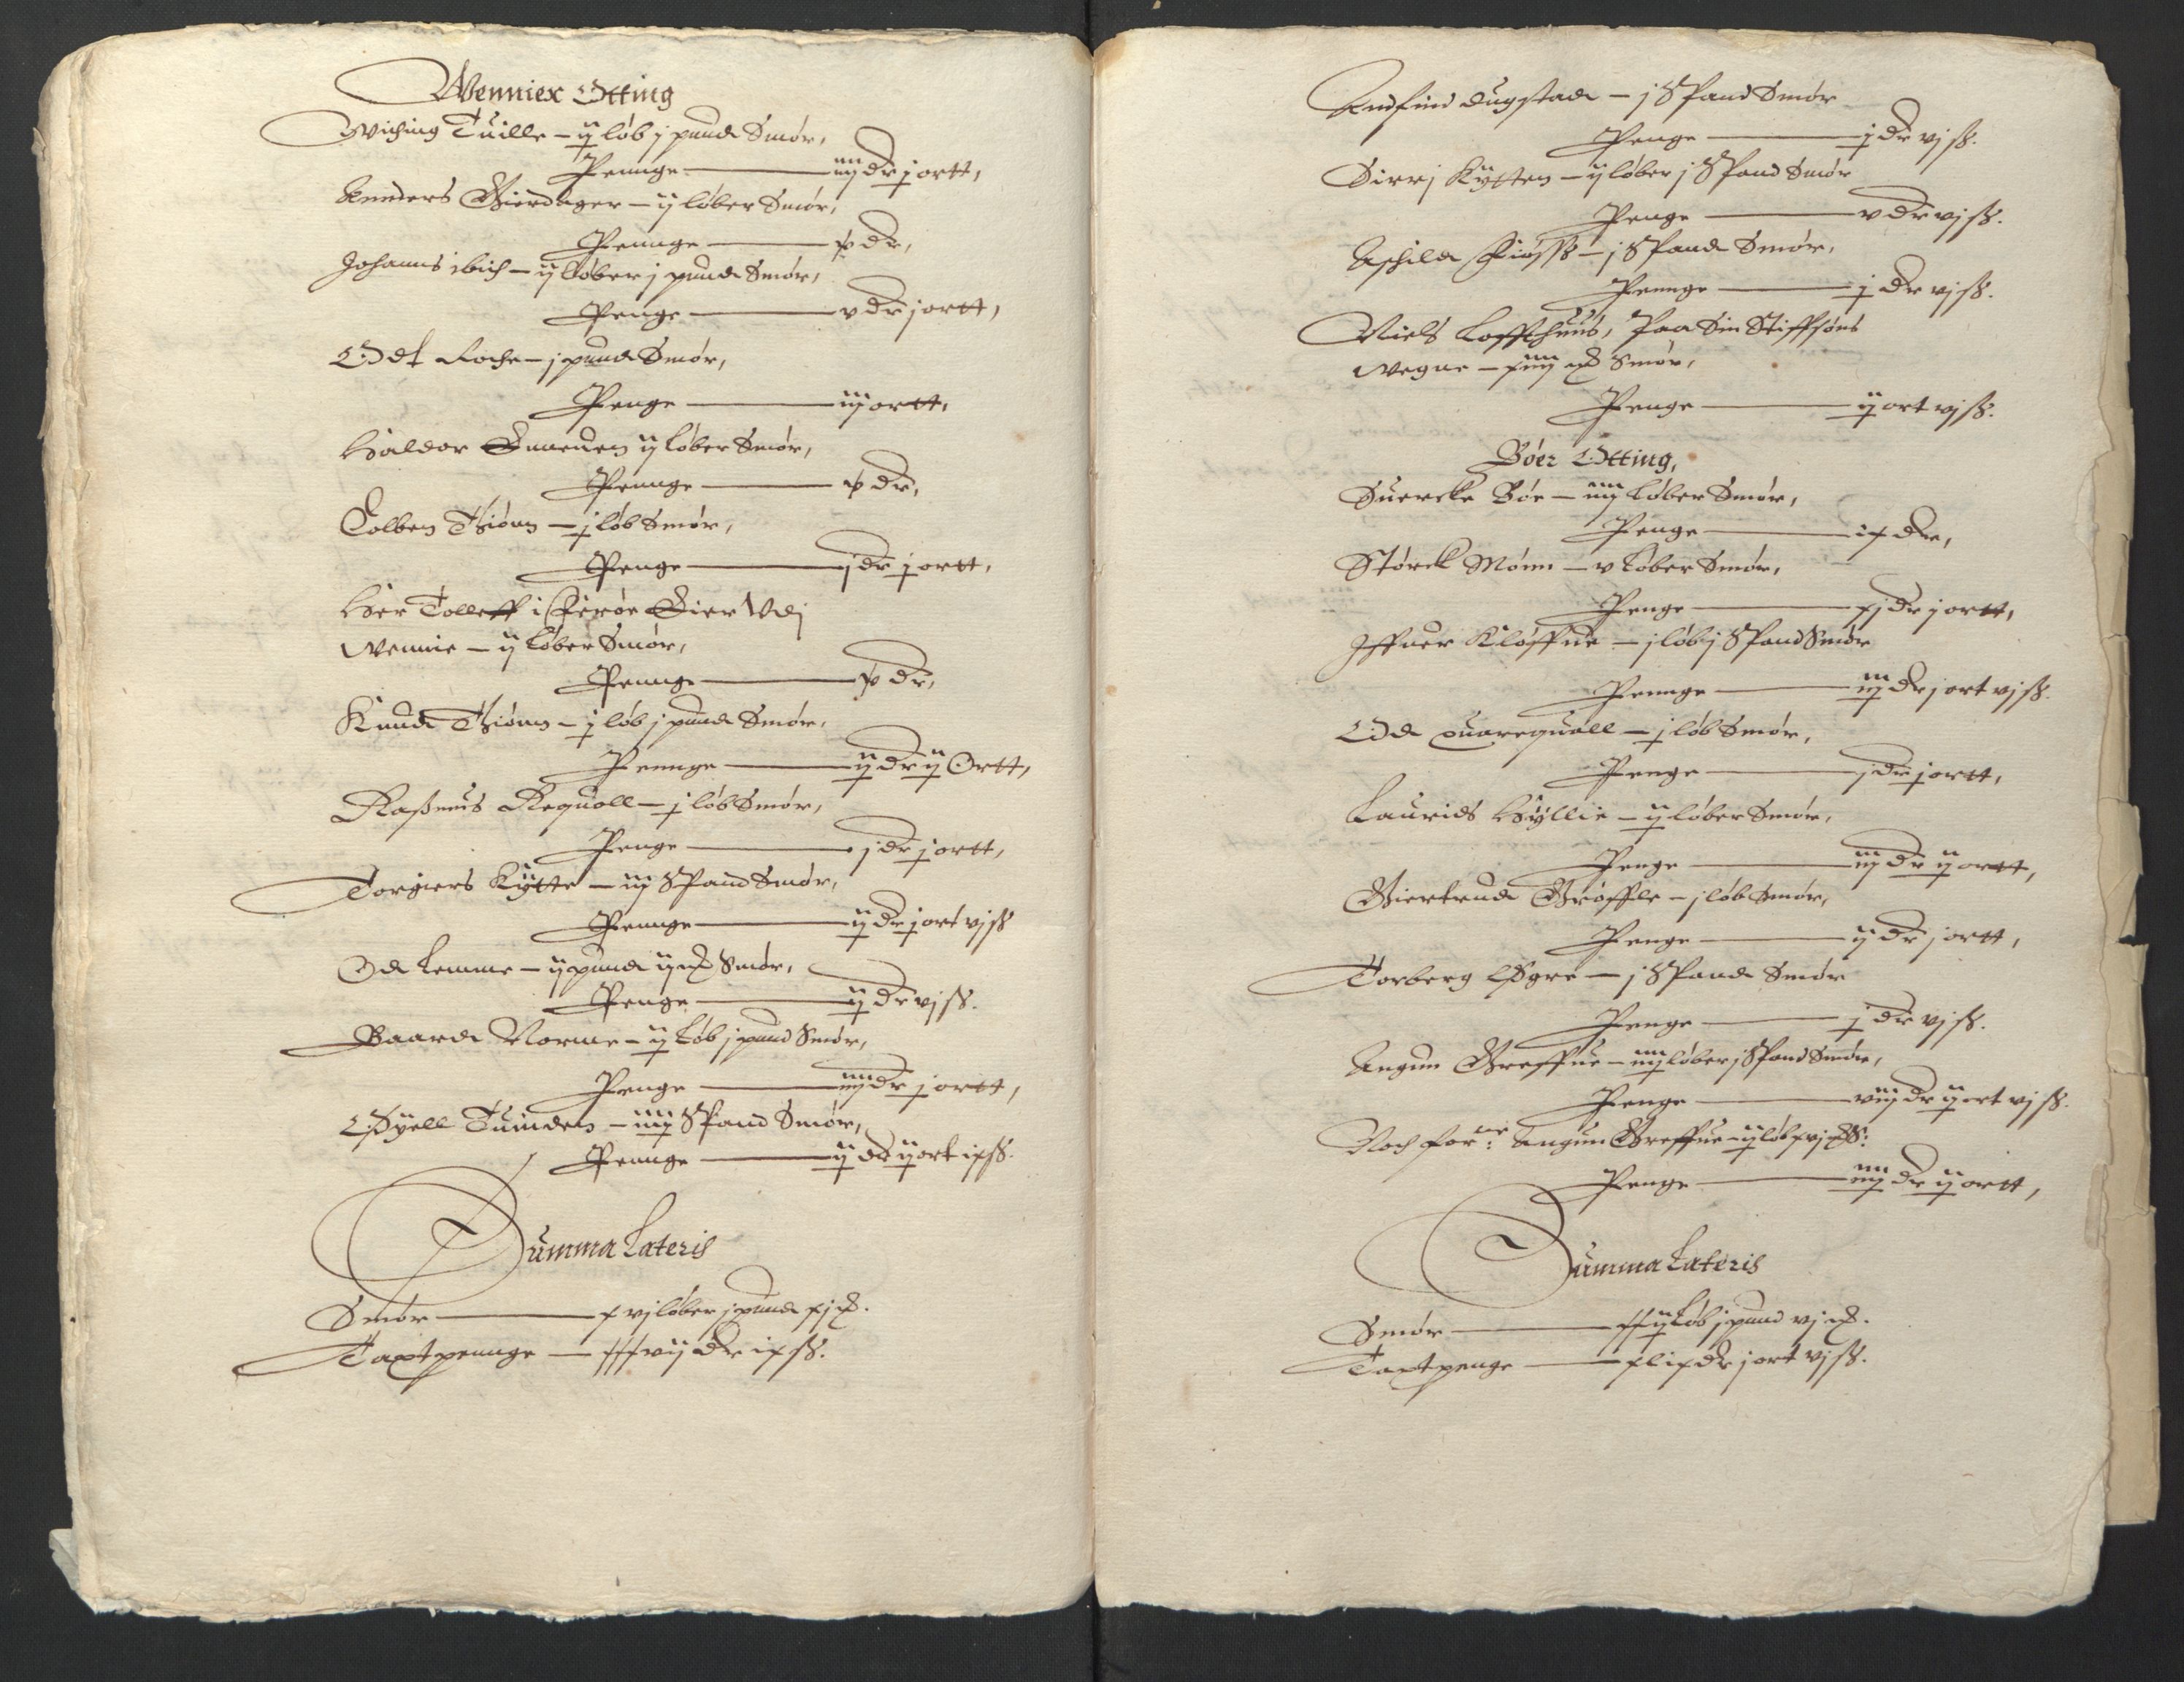 Wenniex Otting
Wiching Tuille – ij løb j pund Smør,
Pennge — iiij dr j ortt,
Annders Gierdager – ij løber Smør,
Pennge — iiij dr,
Johanns ibich – ij Løber j pund Smør,
Penge — v dr j ortt,
Odt Roche – j pund Smør,
Penge — iij ortt,
Haldor ij løber Smør,
Pennge — dr,
Colben Thiönn – j løb Smør,
Penge — j dr j ortt,
Her Tolleff i Fierøe Eier Udj
Wennie – ij Løber Smør,
Pennge — dr,
Knud Thiönn – j løb j pund Smør,
Pennge — ij dr ij Ortt,
Raßmus Requoll – j løb Smør,
Penge — j dr j ortt,
Torgiers Kytte – iij Spand Smør,
Pennge — ij dr j ort vj ß
Od Lemme – ij pund ij mk Smør,
Penge — ij dr vj ß.
Baard Norme – ij Løb j pund Smør,
Penge — iiij dr j ortt,
Øyell Tuinden – iiij Spand Smør,
Pennge — ij dr ij ort ix ß.
Summa Lateris
Smør — xvj løber j pund xj mk.
Taxtpennge — xxxvij dr ix ß.
Andfind dugstad – j Spand Smør
Penge — j dr vj ß.
Sirrj Kytten – ij løber j Spand Smør
Penge — v dr vj ß.
Aschild Fiøsß – j Spand Smør,
Pennge — j dr vj ß.
Niels Loffthuus, Paa Sin Stiffsøns
Wegne – xiiij mk Smør,
Penge — ij ort vj ß.
Böer Otting,
Suercke Bör – iiij Løber Smør,
Penge — ix dr,
Störck Mönn – v Løber Smør,
Penge — xj dr j ortt,
Iffuer Kløffue – j løb j Spand Smør
Pennge — iij dr j ort vj ß.
Od quarequall – j løb Smør,
Penge — j dr j ortt,
Laurids Hyllie – ij løber Smør,
Penge — iij dr ij ortt,
Giertrud Grøffle – j løb Smør,
Penge — ij dr j ortt,
Torberg Øgre – j Spand Smør
Penge — j dr vj ß.
Angun Greffue – iiij løber j Spand Smør,
Penge — viij dr ij ort vj ß.
Noch forne: Angun Greffue – ij løb xvj mk S:
Penge — iiij dr ij ortt,
Summa Lateris
Smør — xxij Løb j pund vj mk.
Taxtpenge — xlix dr j ort vj ß.